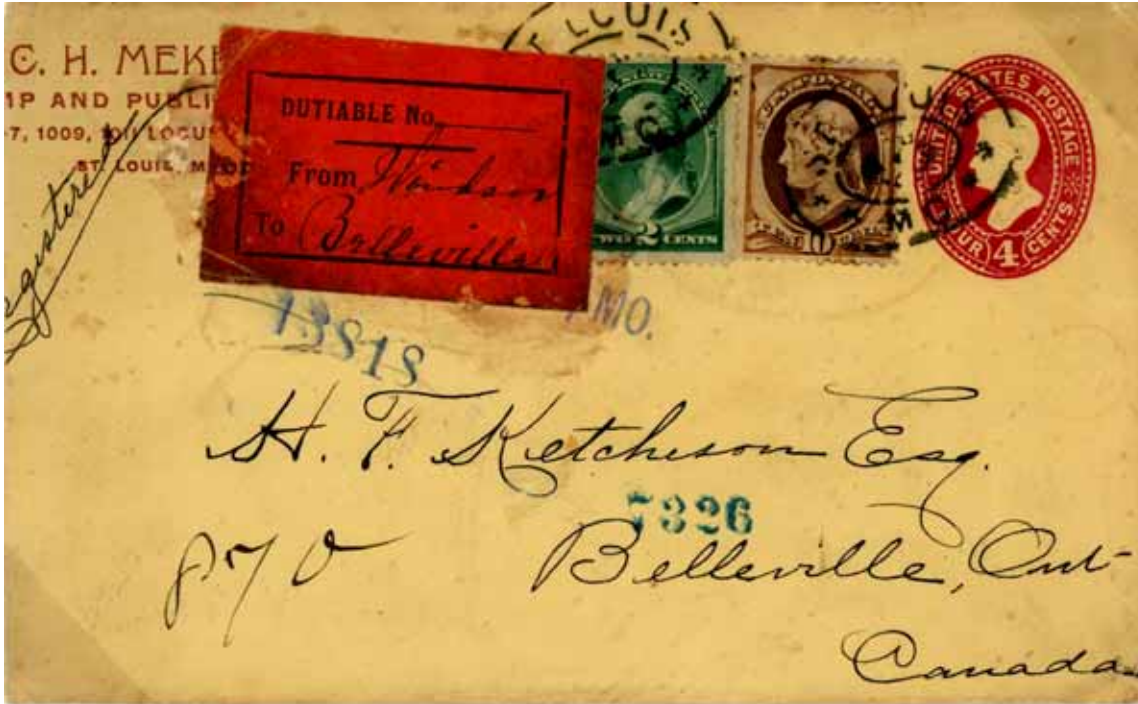 C. H. MEKE
MP AND PUBLI
7, 1009, 1011 LOCUS
ST. LOUIS, M
egistered
DUTIABLE No.
From Windsor
To Belleville
ST LOUIS
MO.
TWO 2 CENTS
U.S. POSTAGE
10
UNITED STATES POSTAGE
FOUR 4 CENTS
MO.
13818
H. F. Ketcheson Esq.
7326
Belleville, Ont
Canada